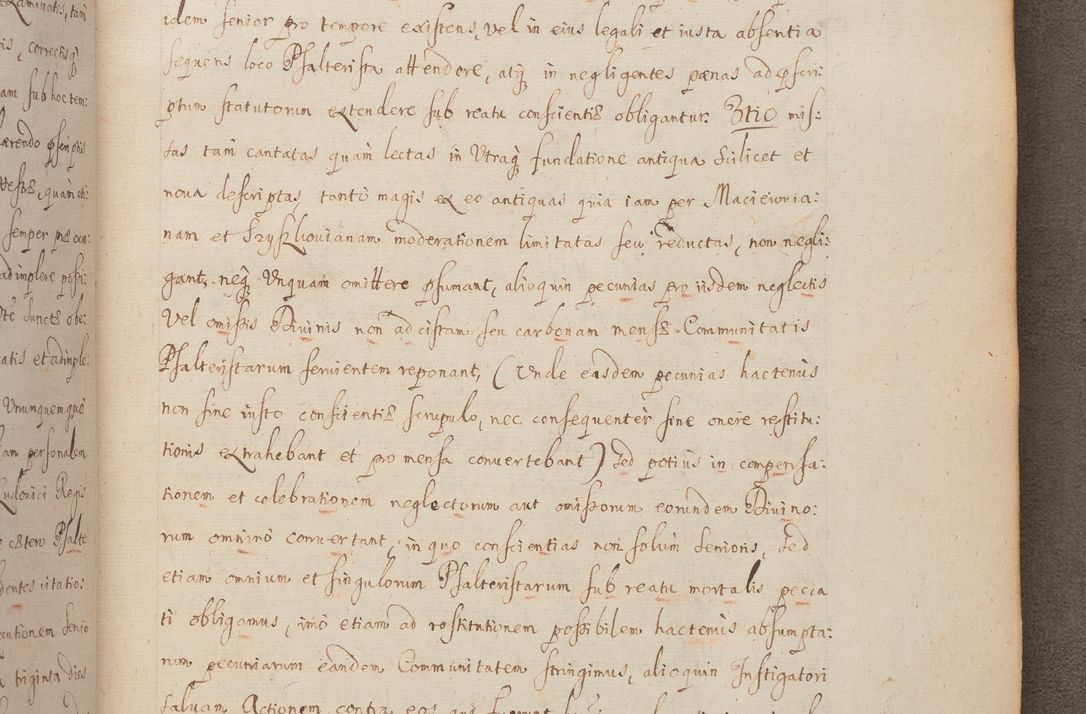 idem senior pro tempore existens, vel in eius legali et iusta absentia
sequens loco Psalterista attendere, atq̃ in negligentes pænas ad pscri:
ptum statutorum extendere sub reatu conscientiæ obligantur. 3tio mis:
sas tam cantatas quam lectas in Utraq̃ fundatione antiqua scilicet et
noua descriptas, tantò magis ex eo antiquas quia iam per Macieiouia:
nam et Szyszkouianam moderationem limitatas seu reductas, non negli:
gant, neq̃ Unquam omittere psumant, alioquin pecunias pro iisdem neglectis
vel omissis Diuinis non ad cistam seu carbonam mensæ Communitatis
Psalteristarum seruientem reponant, (Unde easdem pecunias hactenus
non sine iusto conscientiæ scrupulo, nec consequenter sine onere restitu:
tionis extrahebant et pro mensa conuertebant) sed potius in compensa:
tionem et celebrationem neglectorum aut omissorum eorundem Diuino:
rum omninò conuertant, in quo conscientias non solum senioris, sed
etiam omnium et singulorum Psalteristarum sub reatu mortalis pecca
ti obligamus, imò etiam ad restitutionem possibilem hactenus absumpta:
rum pecuniarum eandem Communitatem stringimus, alioquin Instigatori
saluam Actionem contra eos qui
is, correctisq̃
am sub hoc tem:
ærendo pscriptis
vestræ, quam eti:
semper præ ocu:
adimplere possi:
te sanctæ obe:
atis et adimple:
Unumquemquè
am personalem
Ludouici Regis
cætero Psalte
dentes citatio:
cutionem senio
triginta dies